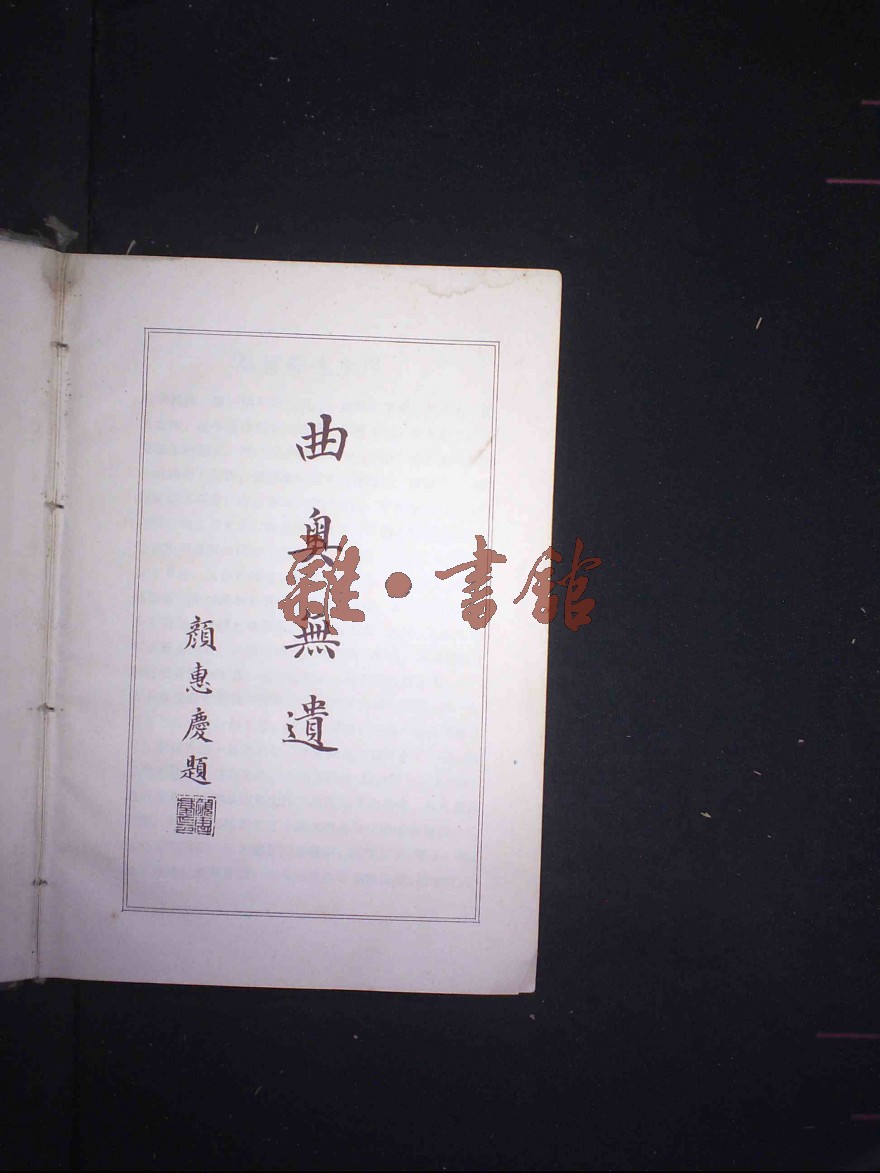 曲奧無遺
顏惠慶題
雜·書館